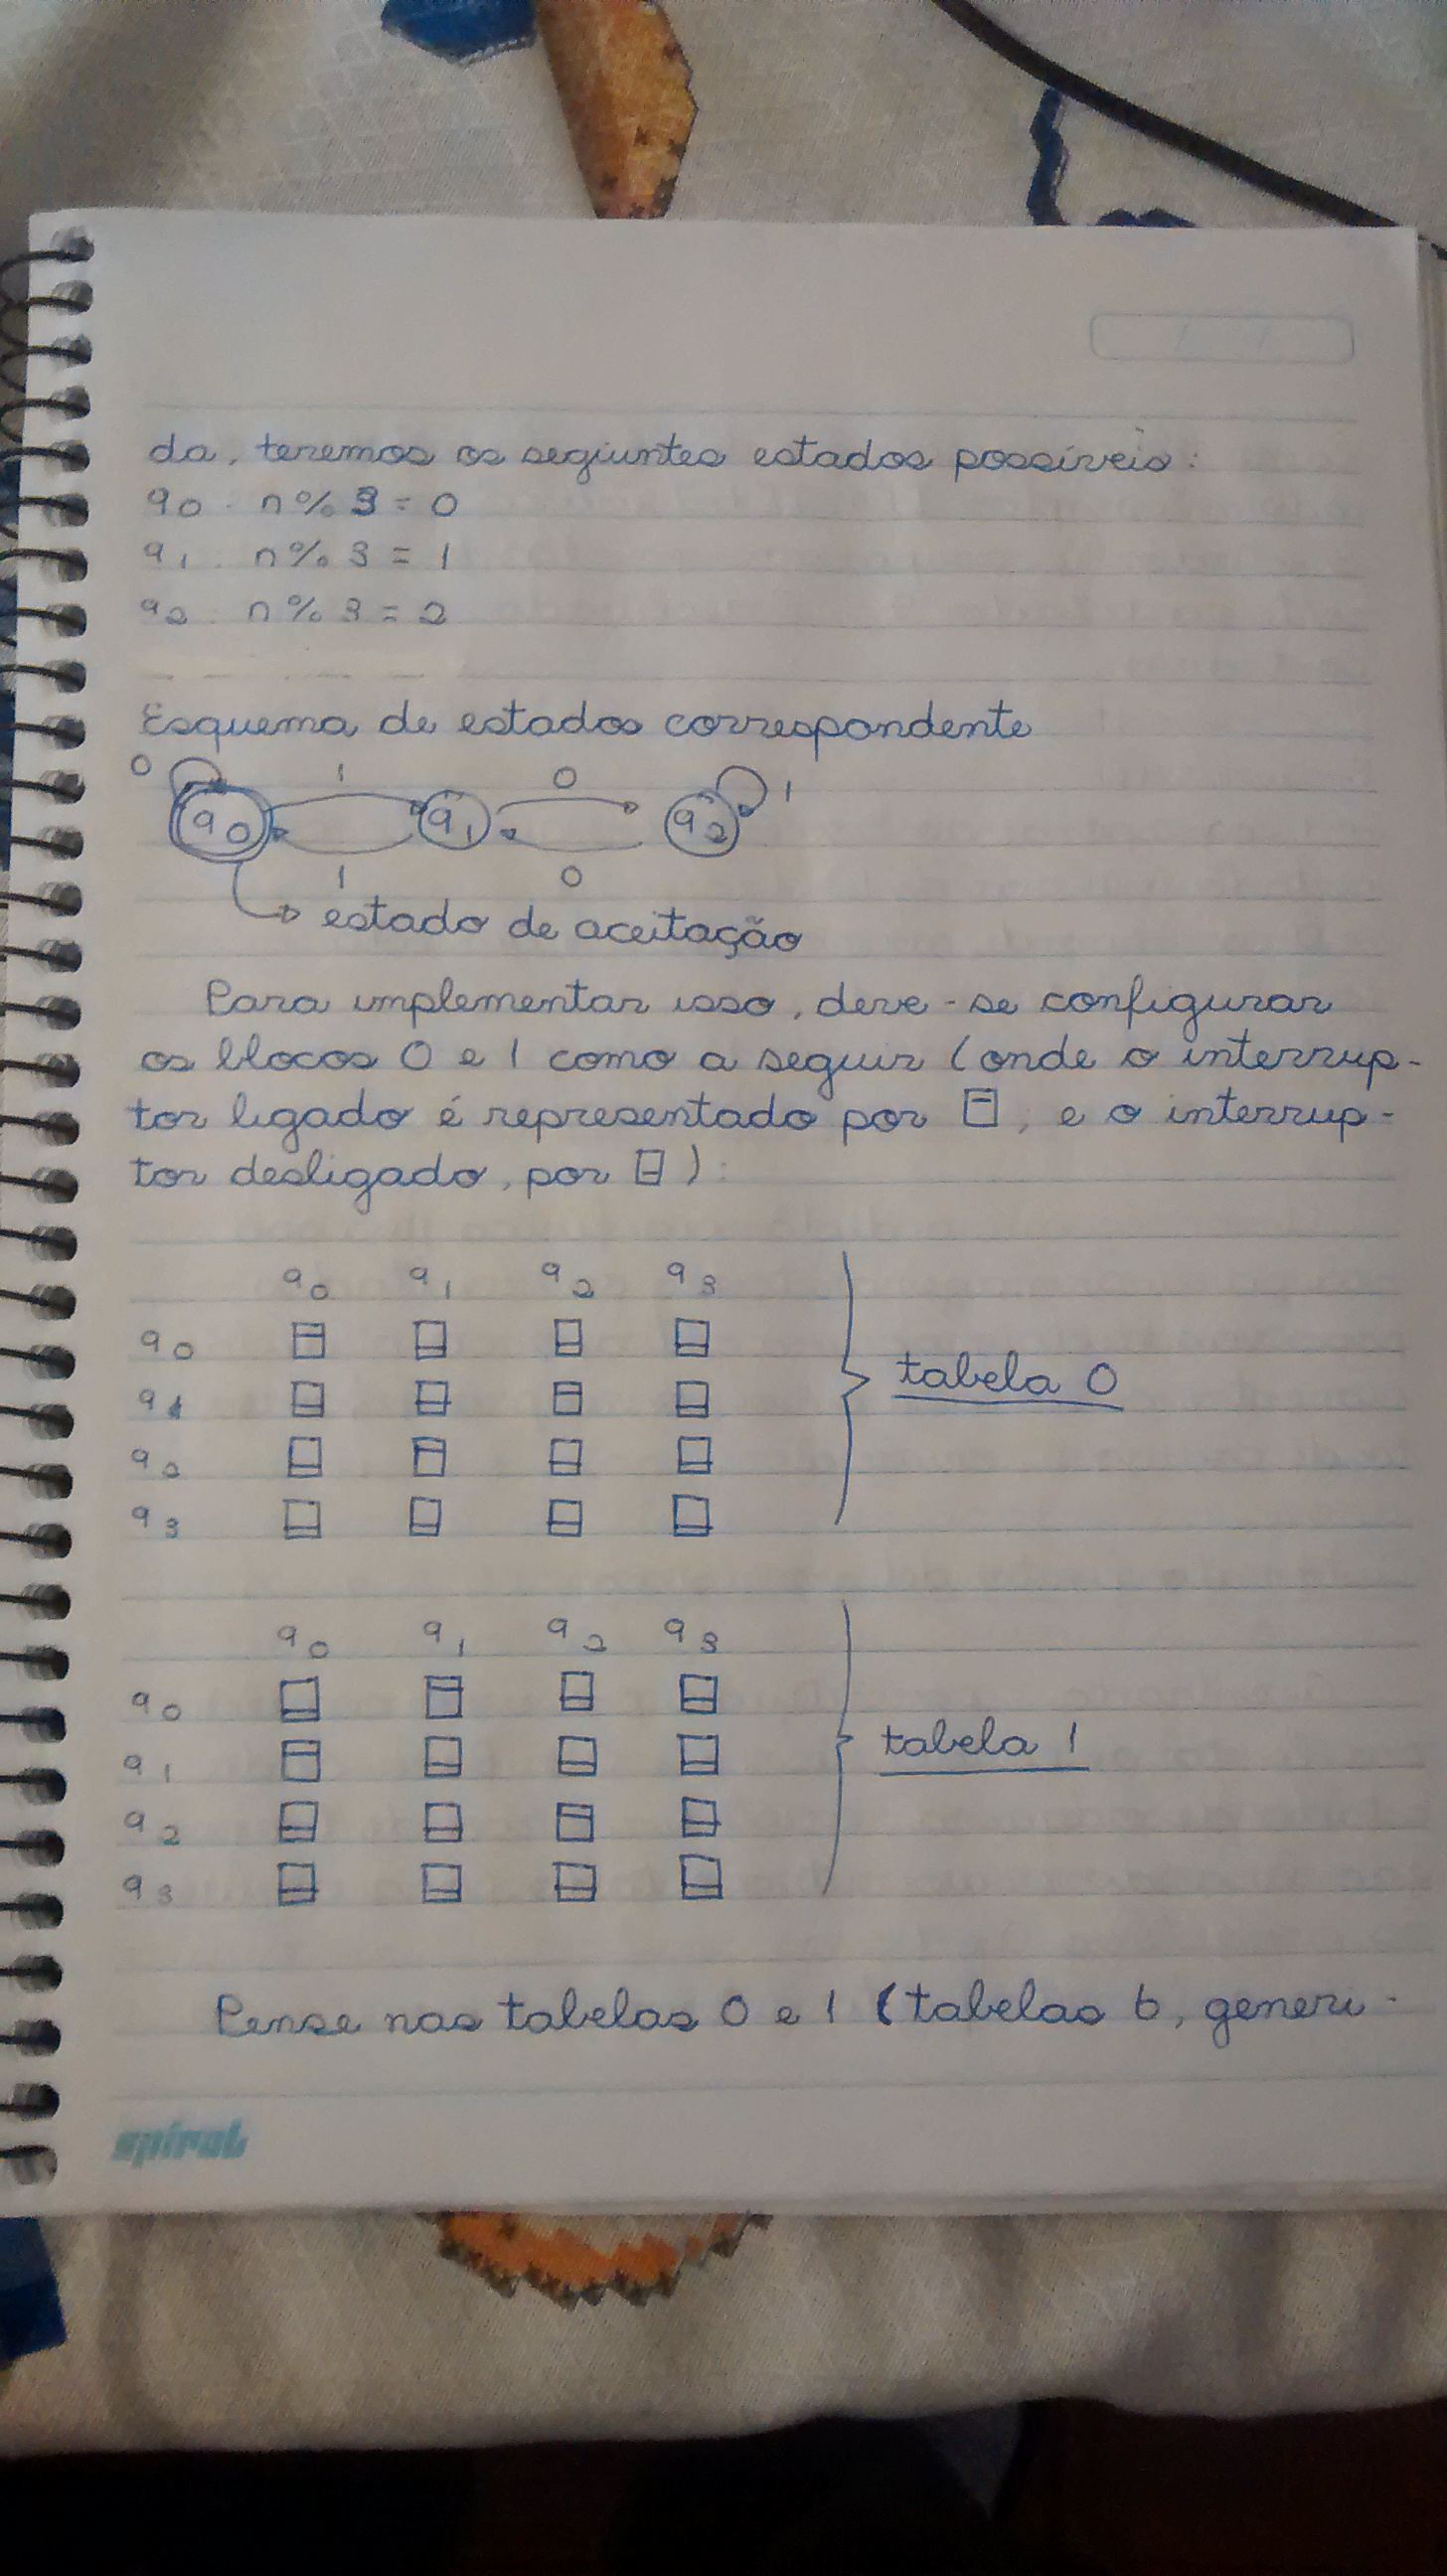 da, teremos os seguintes estados possíveis:
q0: n % 3 = 0
q1: n % 3 = 1
q2: n % 3 = 2
Esquema de estados correspondente
0 1 0 1
q0 q1 q2
1 0
estado de aceitação
Para implementar isso, deve-se configurar
os blocos 0 e 1 como a seguir (onde o interrup-
tor ligado é representado por , e o interrup-
tor desligado, por ):
q0 q1 q2 q3
q0
q1
tabela 0
q2
q3
q0 q1 q2 q3
q0
q1
tabela 1
q2
q3
Pense nas tabelas 0 e 1 (tabelas b, generi-
spiral